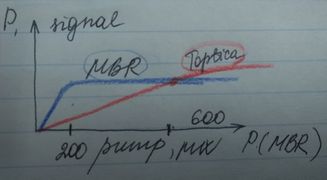 P, signal
MBR
Toptica
600
200 pump, P(MBR)